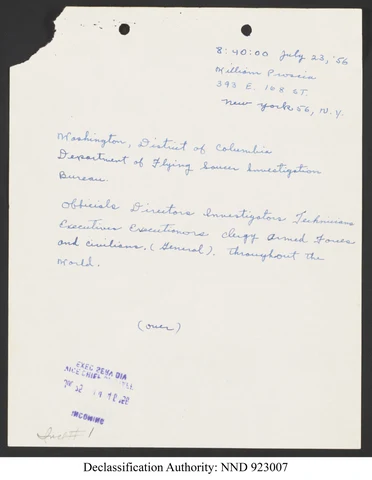 8:40:00 July 23, '56
William
393 E. 108 ST.
New York 56, N.Y.
Washington, District of Columbia
Department of Flying Saucer Investigation
Bureau.
Officials Directors Investigators Technicians
Executives Executionors clergy Armed Forces
and civilians. (General). throughout the
World.
(over)
EXEC
INCOMING
1
Declassification Authority: NND 923007